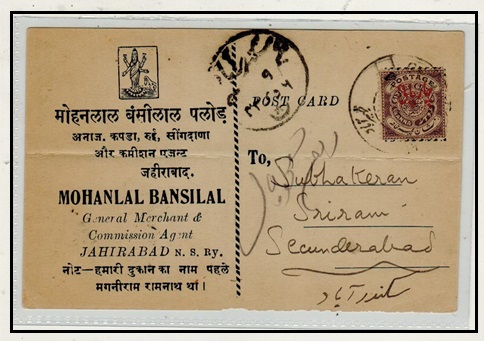 मोहनलाल बंसीलाल पलोड़
अनाज, कपडा, रुई, सींगदाणा
और कमीशन एजन्ट
जहीराबाद.
MOHANLAL BANSILAL
General Merchant &
Commission Agent
JAHIRABAD N. S. Ry.
नोट—हमारी दुकान का नाम पहले
मगनीराम रामनाथ था।
POST CARD
POSTAGE
To,
Subhakeran
Sriram
Secunderabad